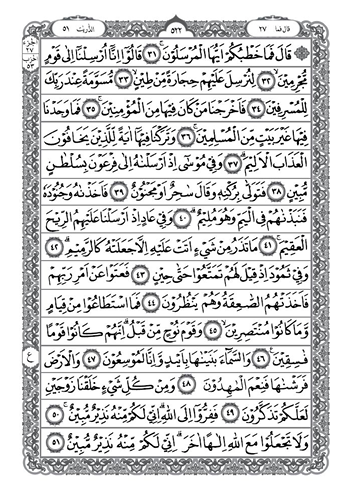 قال فما ٢٧ ٥٢٢ الذّريٰت ٥١
جزء
٢٧
حزب
٥٣
قَالَ فَمَا خَطْبُكُمْ اَيُّهَا الْمُرْسَلُوْنَ ﴿٣١﴾ قَالُوْٓا اِنَّآ اُرْسِلْنَآ اِلٰى قَوْمٍ
مُّجْرِمِيْنَ ﴿٣٢﴾ لِنُرْسِلَ عَلَيْهِمْ حِجَارَةً مِّنْ طِيْنٍ ﴿٣٣﴾ مُّسَوَّمَةً عِنْدَ رَبِّكَ
لِلْمُسْرِفِيْنَ ﴿٣٤﴾ فَاَخْرَجْنَا مَنْ كَانَ فِيْهَا مِنَ الْمُؤْمِنِيْنَ ﴿٣٥﴾ فَمَا وَجَدْنَا
فِيْهَا غَيْرَ بَيْتٍ مِّنَ الْمُسْلِمِيْنَ ﴿٣٦﴾ وَتَرَكْنَا فِيْهَآ اٰيَةً لِّلَّذِيْنَ يَخَافُوْنَ
الْعَذَابَ الْاَلِيْمَ ﴿٣٧﴾ وَفِيْ مُوْسٰٓى اِذْ اَرْسَلْنٰهُ اِلٰى فِرْعَوْنَ بِسُلْطٰنٍ
مُّبِيْنٍ ﴿٣٨﴾ فَتَوَلّٰى بِرُكْنِهٖ وَقَالَ سٰحِرٌ اَوْ مَجْنُوْنٌ ﴿٣٩﴾ فَاَخَذْنٰهُ وَجُنُوْدَهٗ
فَنَبَذْنٰهُمْ فِى الْيَمِّ وَهُوَ مُلِيْمٌ ﴿٤٠﴾ وَفِيْ عَادٍ اِذْ اَرْسَلْنَا عَلَيْهِمُ الرِّيْحَ
الْعَقِيْمَ ﴿٤١﴾ مَا تَذَرُ مِنْ شَيْءٍ اَتَتْ عَلَيْهِ اِلَّا جَعَلَتْهُ كَالرَّمِيْمِ ﴿٤٢﴾
وَفِيْ ثَمُوْدَ اِذْ قِيْلَ لَهُمْ تَمَتَّعُوْا حَتّٰى حِيْنٍ ﴿٤٣﴾ فَعَتَوْا عَنْ اَمْرِ رَبِّهِمْ
فَاَخَذَتْهُمُ الصّٰعِقَةُ وَهُمْ يَنْظُرُوْنَ ﴿٤٤﴾ فَمَا اسْتَطَاعُوْا مِنْ قِيَامٍ
وَّمَا كَانُوْا مُنْتَصِرِيْنَ ﴿٤٥﴾ وَقَوْمَ نُوْحٍ مِّنْ قَبْلُ اِنَّهُمْ كَانُوْا قَوْمًا
فٰسِقِيْنَ ﴿٤٦﴾ وَالسَّمَآءَ بَنَيْنٰهَا بِاَيْيدٍ وَّاِنَّا لَمُوْسِعُوْنَ ﴿٤٧﴾ وَالْاَرْضَ
ع
فَرَشْنٰهَا فَنِعْمَ الْمٰهِدُوْنَ ﴿٤٨﴾ وَمِنْ كُلِّ شَيْءٍ خَلَقْنَا زَوْجَيْنِ
لَعَلَّكُمْ تَذَكَّرُوْنَ ﴿٤٩﴾ فَفِرُّوْٓا اِلَى اللّٰهِ اِنِّيْ لَكُمْ مِّنْهُ نَذِيْرٌ مُّبِيْنٌ ﴿٥٠﴾
وَلَا تَجْعَلُوْا مَعَ اللّٰهِ اِلٰهًا اٰخَرَ اِنِّيْ لَكُمْ مِّنْهُ نَذِيْرٌ مُّبِيْنٌ ﴿٥١﴾